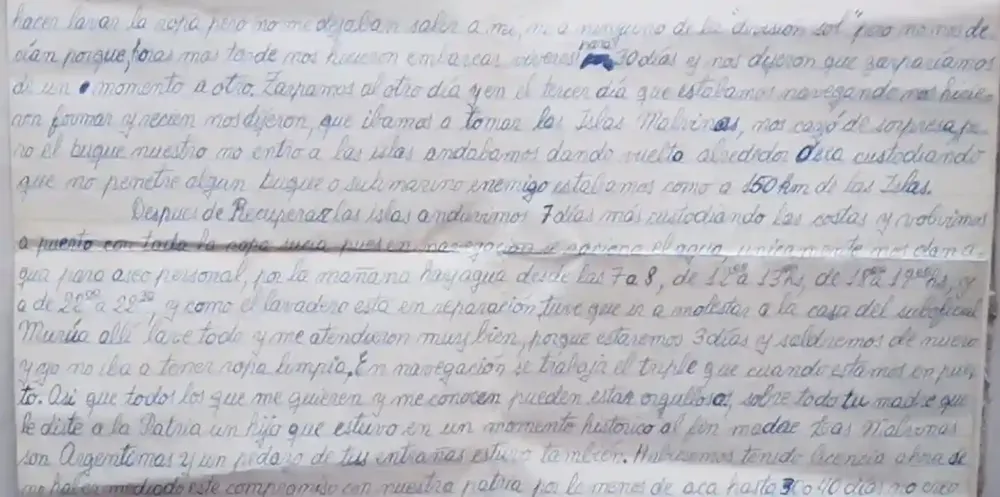 hacer lavar la ropa pero no me dejaban salir a mi, ni a ninguno de la "division sol" pero no nos de
cían porque, horas mas tarde nos hicieron embarcar viveres para 30 días y nos dijeron que zarpariamos
de un momento a otro. Zarpamos al otro día y en el tercer día que estabamos navegando nos hicie
ron formar y recien nos dijeron, que ibamos a tomar las Islas Malvinas, nos cayó de sorpresa pe
ro el buque nuestro no entro a las islas andabamos dando vuelta alrededor Osea custodiando
que no penetre algun buque o submarino enemigo estabamos como a 150 km de las Islas.
Despues de Recuperar las islas anduvimos 7 días más custodiando las costas y volvimos
a puerto con toda la ropa sucia pues en navegacion se raciona el agua, unicamente nos dan a
gua para aseo personal, por la mañana hay agua desde las 7 a 8, de 12⁰⁰ a 13 hs, de 18⁰⁰ a 19⁰⁰ hs, y
a de 22⁰⁰ a 22³⁰, y como el lavadero esta en reparación, tuve que ir a molestar a la casa del suboficial
Murúa alli lave todo y me atendieron muy bien, porque estaremos 3 días y saldremos de nuevo
y yo no iba a tener ropa limpia. En navegación se trabaja el triple que cuando estamos en puer
to. Asi que todos los que me quieren y me conocen pueden estar orgullosos, sobre todo tu madre que
le diste a la Patria un hijo que estuvo en un momento histórico al fin madre las Malvinas
son Argentinas y un pedazo de tus entrañas estuvo tambien. Hubiesemos tenido licencia ahora de
no haber mediado este compromiso con nuestra patria por lo menos de aca hasta 30 o 40 dias no creo